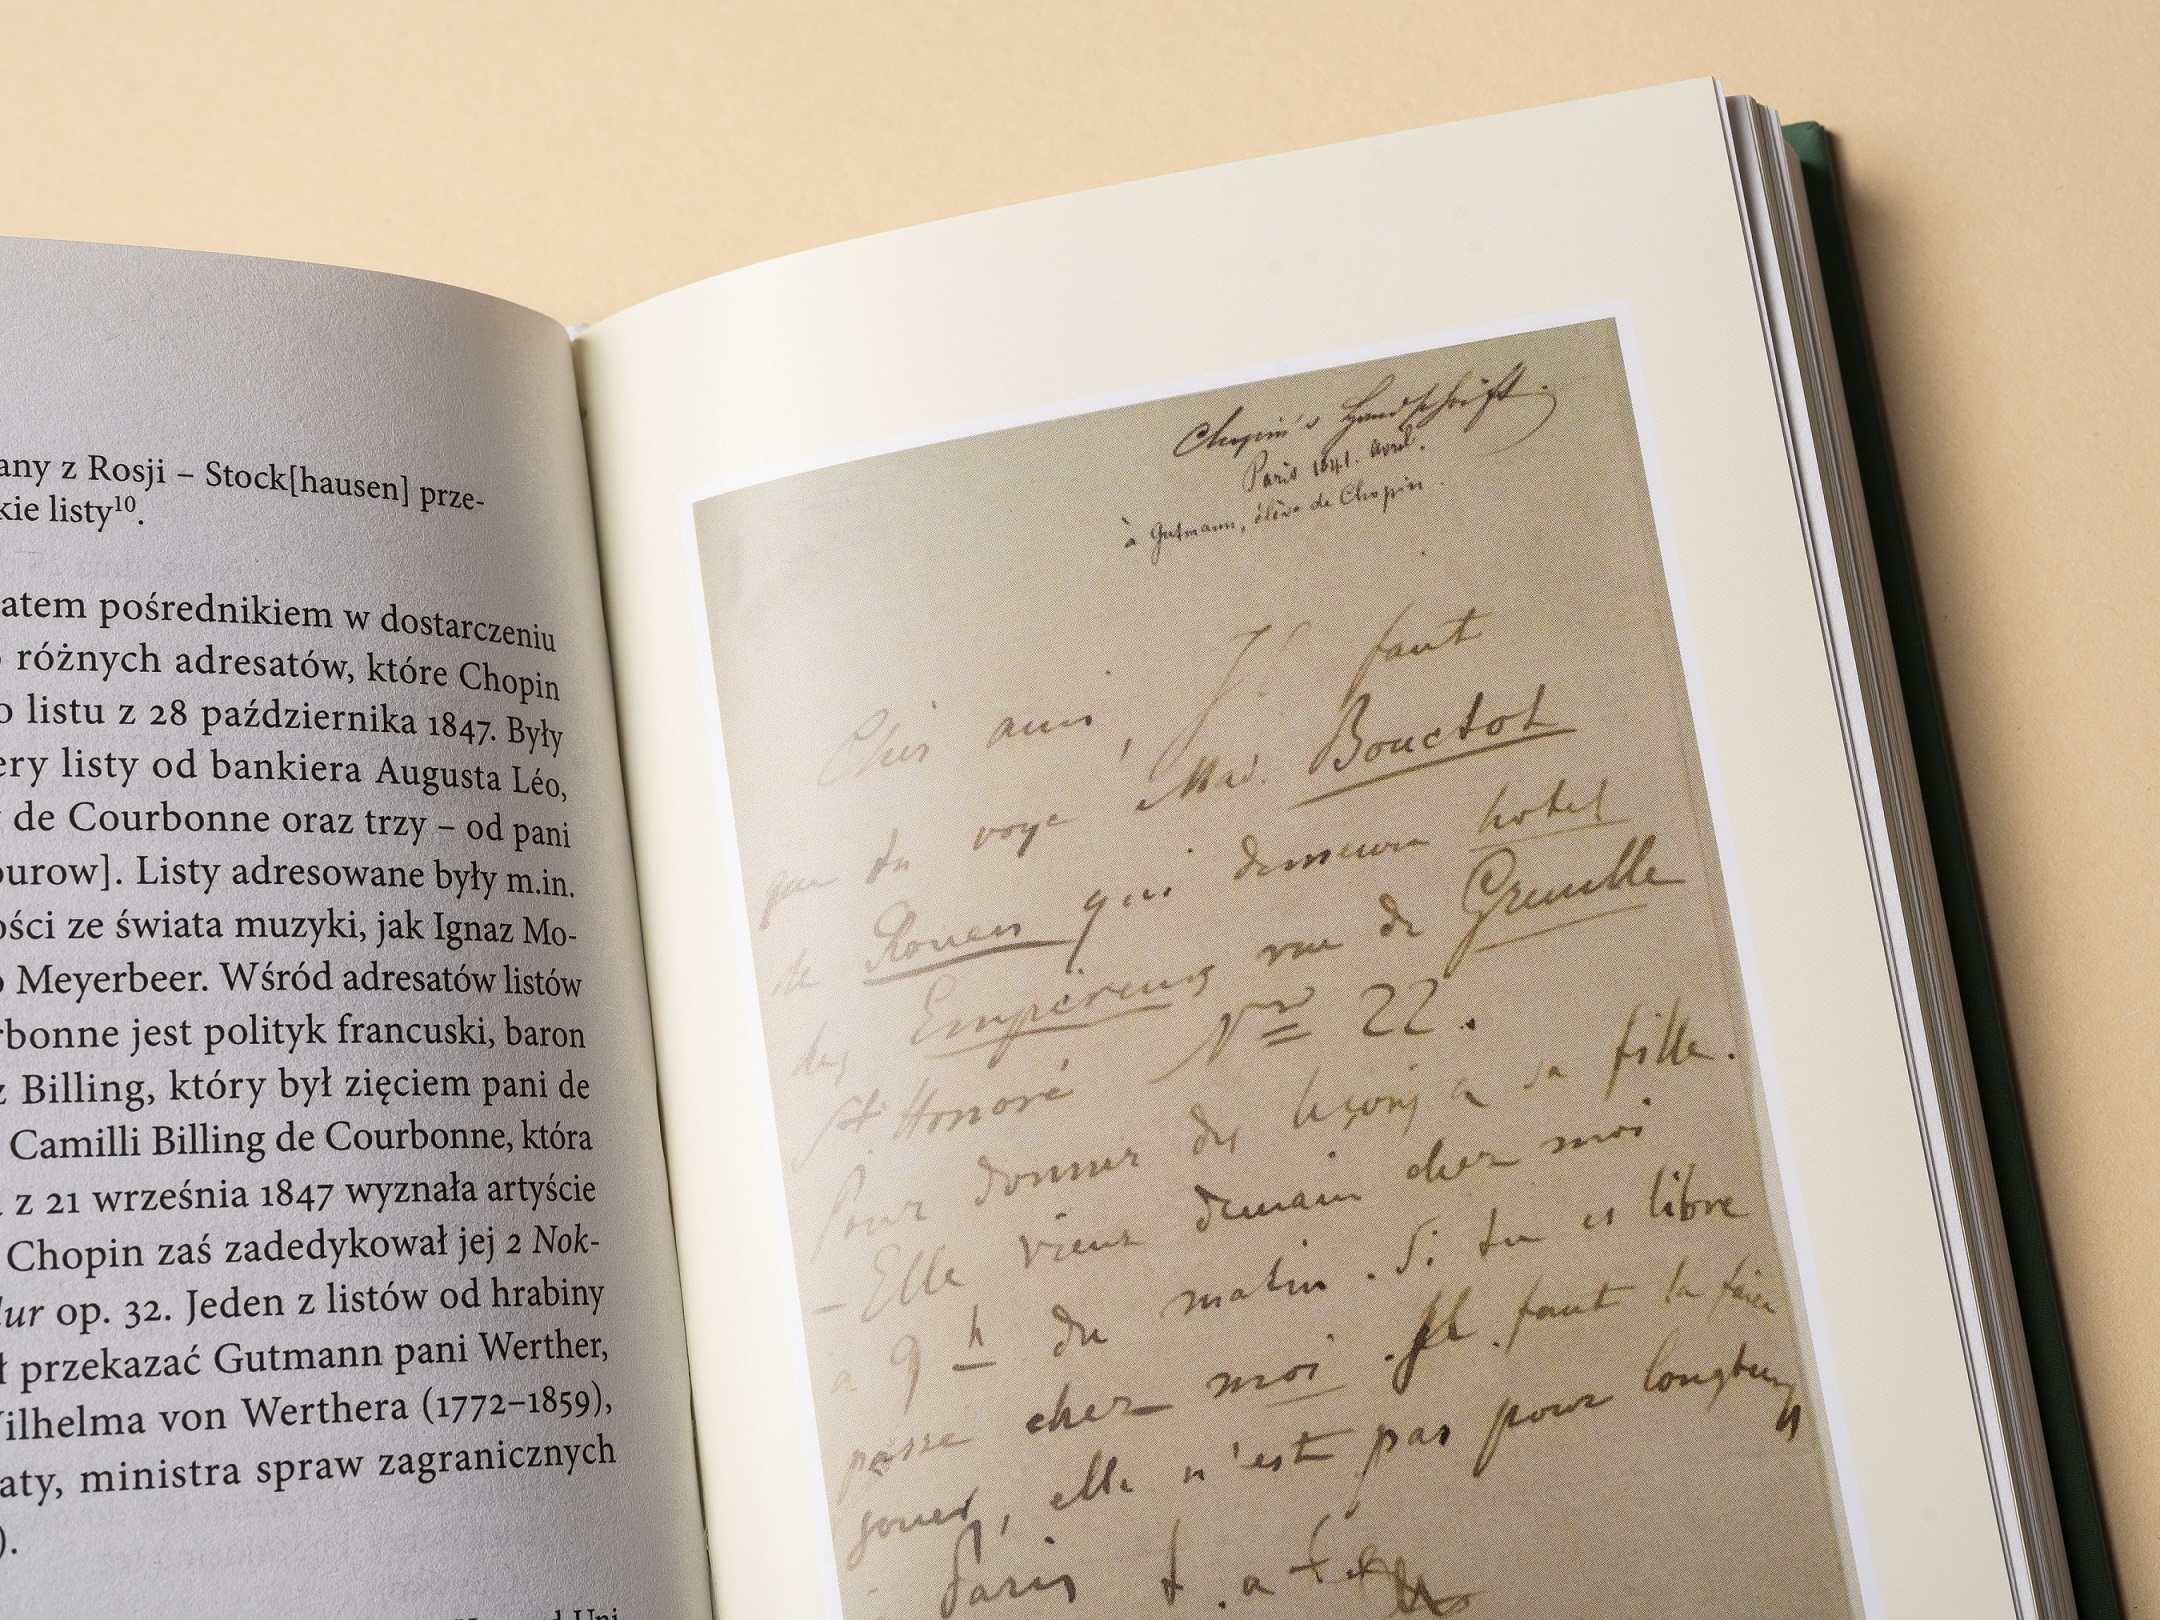 any z Rosji – Stock[hausen] prze-
kie listy¹⁰.
atem pośrednikiem w dostarczeniu
różnych adresatów, które Chopin
o listu z 28 października 1847. Były
ery listy od bankiera Augusta Léo,
de Courbonne oraz trzy – od pani
ourow]. Listy adresowane były m.in.
ości ze świata muzyki, jak Ignaz Mo-
o Meyerbeer. Wśród adresatów listów
rbonne jest polityk francuski, baron
z Billing, który był zięciem pani de
Camilli Billing de Courbonne, która
z 21 września 1847 wyznała artyście
Chopin zaś zadedykował jej 2 Nok-
dur op. 32. Jeden z listów od hrabiny
ł przekazać Gutmann pani Werther,
Wilhelma von Werthera (1772–1859),
aty, ministra spraw zagranicznych
).
Chopin's Handschrift.
Paris 1841. avril.
à Gutmann, élève de Chopin.
Cher ami, Il faut
que tu voye Mad. Bouctot
de Rouen qui demeure hotel
des Empereurs rue de Grenelle
St Honoré Nro 22.
Pour donner des leçons à sa fille.
– Elle vient demain chez moi
a 9 h du matin. Si tu es libre
passe chez moi. Il faut la faire
jouer, elle n'est pas pour longtems
Paris